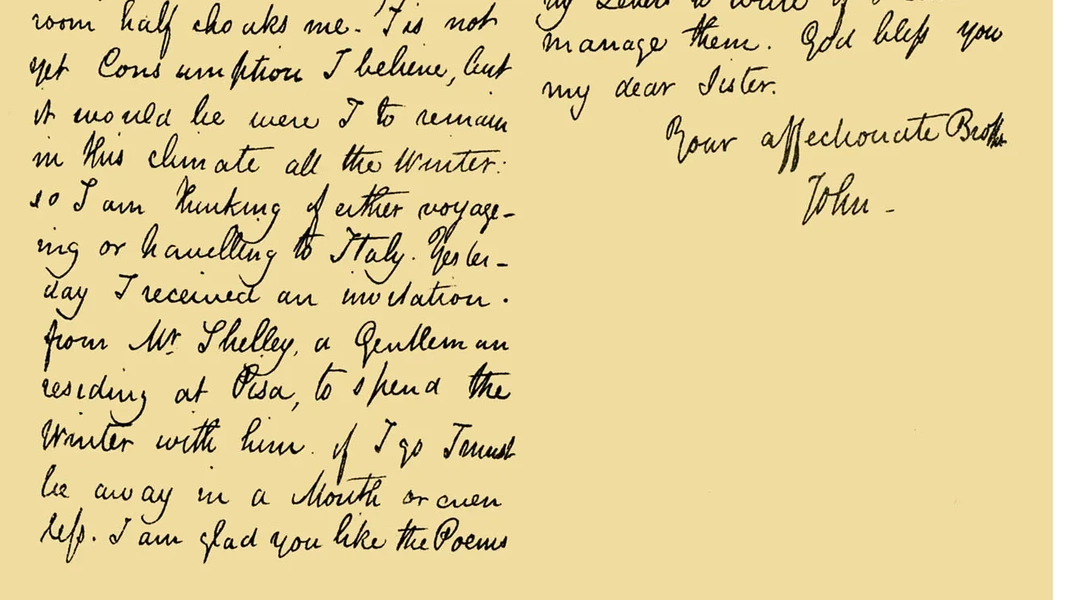 room half choaks me. 'Tis not
yet Consumption I believe, but
it would be were I to remain
in this climate all the Winter:
so I am thinking of either voyage-
ing or travelling to Italy. Yester-
day I received an invitation
from Mr. Shelley, a Gentleman
residing at Pisa, to spend the
Winter with him. if I go I must
be away in a Month or even
less. I am glad you like the Poems
manage them. God bless you
my dear Sister.
Your affectionate Brother
John -